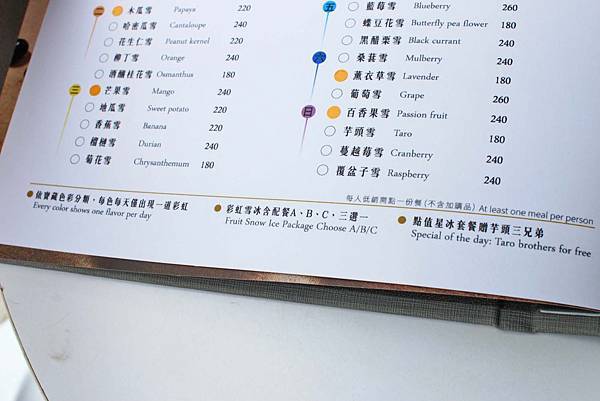 二 木瓜雪 Papaya 220
哈密瓜雪 Cantaloupe 240
花生仁雪 Peanut kernel 220
柳丁雪 Orange 240
酒釀桂花雪 Osmanthus 180
三 芒果雪 Mango 240
地瓜雪 Sweet potato 220
香蕉雪 Banana 220
榴槤雪 Durian 240
菊花雪 Chrysanthemum 180
五 藍莓雪 Blueberry 260
蝶豆花雪 Butterfly pea flower 180
黑醋栗雪 Black currant 240
六 桑葚雪 Mulberry 240
薰衣草雪 Lavender 180
葡萄雪 Grape 260
日 百香果雪 Passion fruit 240
芋頭雪 Taro 220
蔓越莓雪 Cranberry 240
覆盆子雪 Raspberry 240
每人低銷需點一份餐(不含加購品) At least one meal per person
依寶藏色彩分類，每色每天僅出現一道彩虹
Every color shows one flavor per day
彩虹雪冰合配餐A、B、C，三選一
Fruit Snow Ice Package Choose A/B/C
點值星冰套餐贈芋頭三兄弟
Special of the day: Taro brothers for free